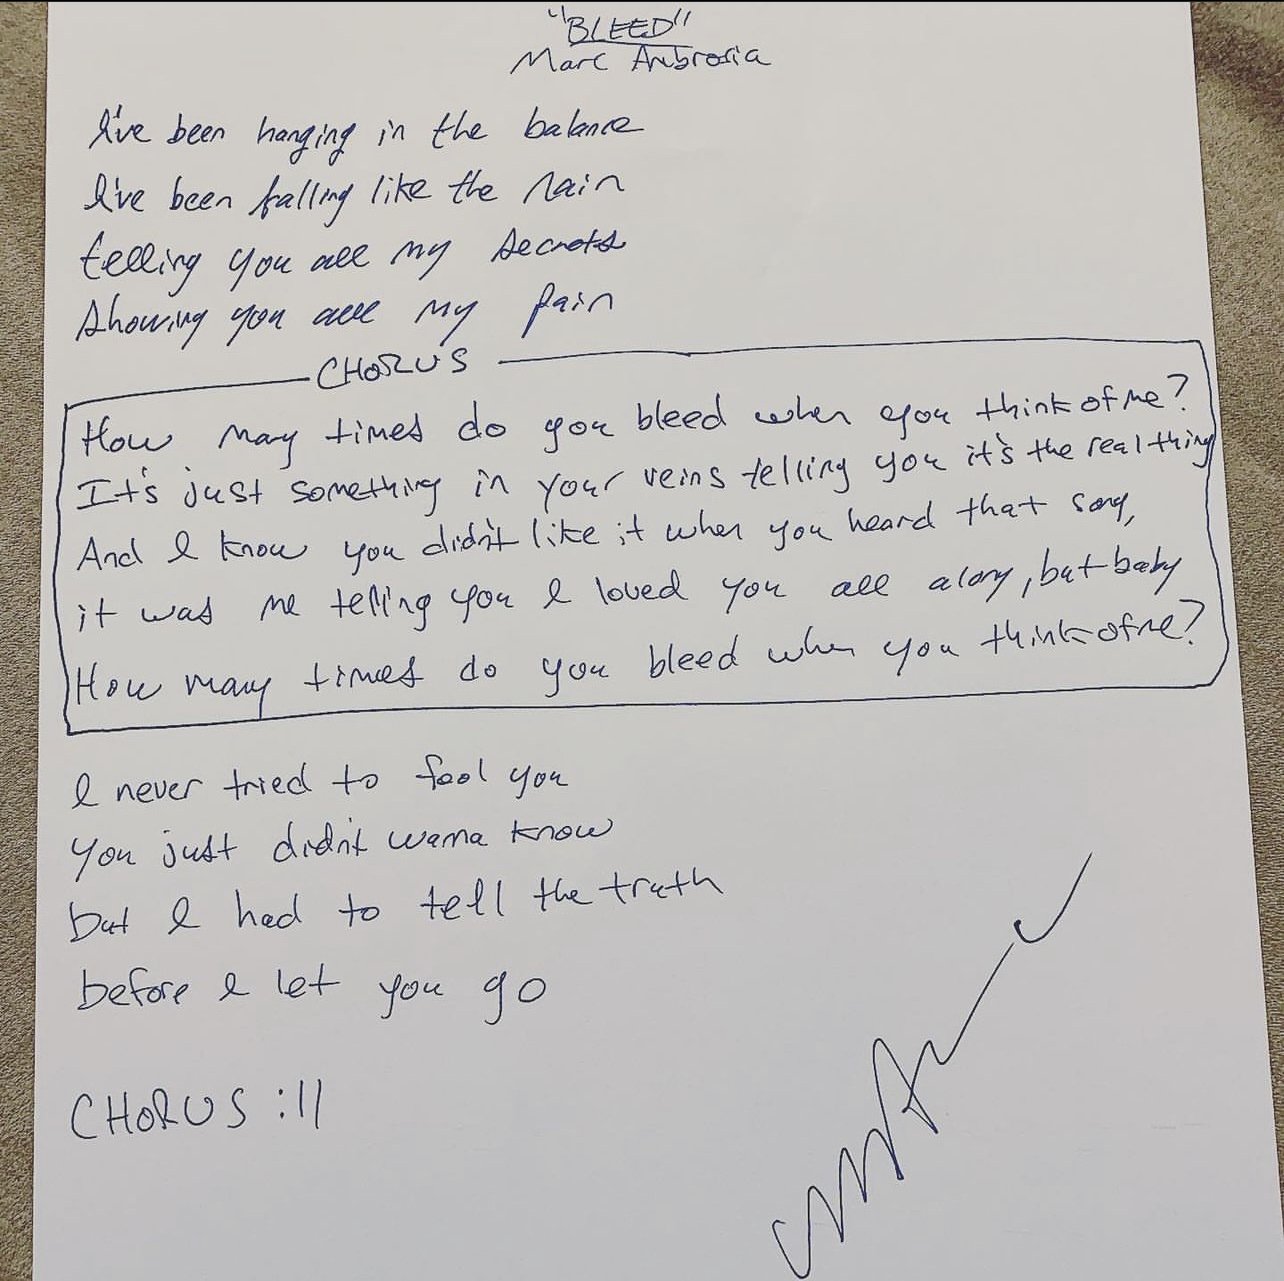 "BLEED"
Marc Ambrosia
I've been hanging in the balance
I've been falling like the rain
telling you all my secrets
showing you all my pain
CHORUS
How may times do you bleed when you think of me?
It's just something in your veins telling you it's the real thing
And I know you didn't like it when you heard that song,
it was me telling you I loved you all along, but baby
How many times do you bleed when you think of me?
I never tried to fool you
you just didn't wanna know
but I had to tell the truth
before I let you go
CHORUS :||